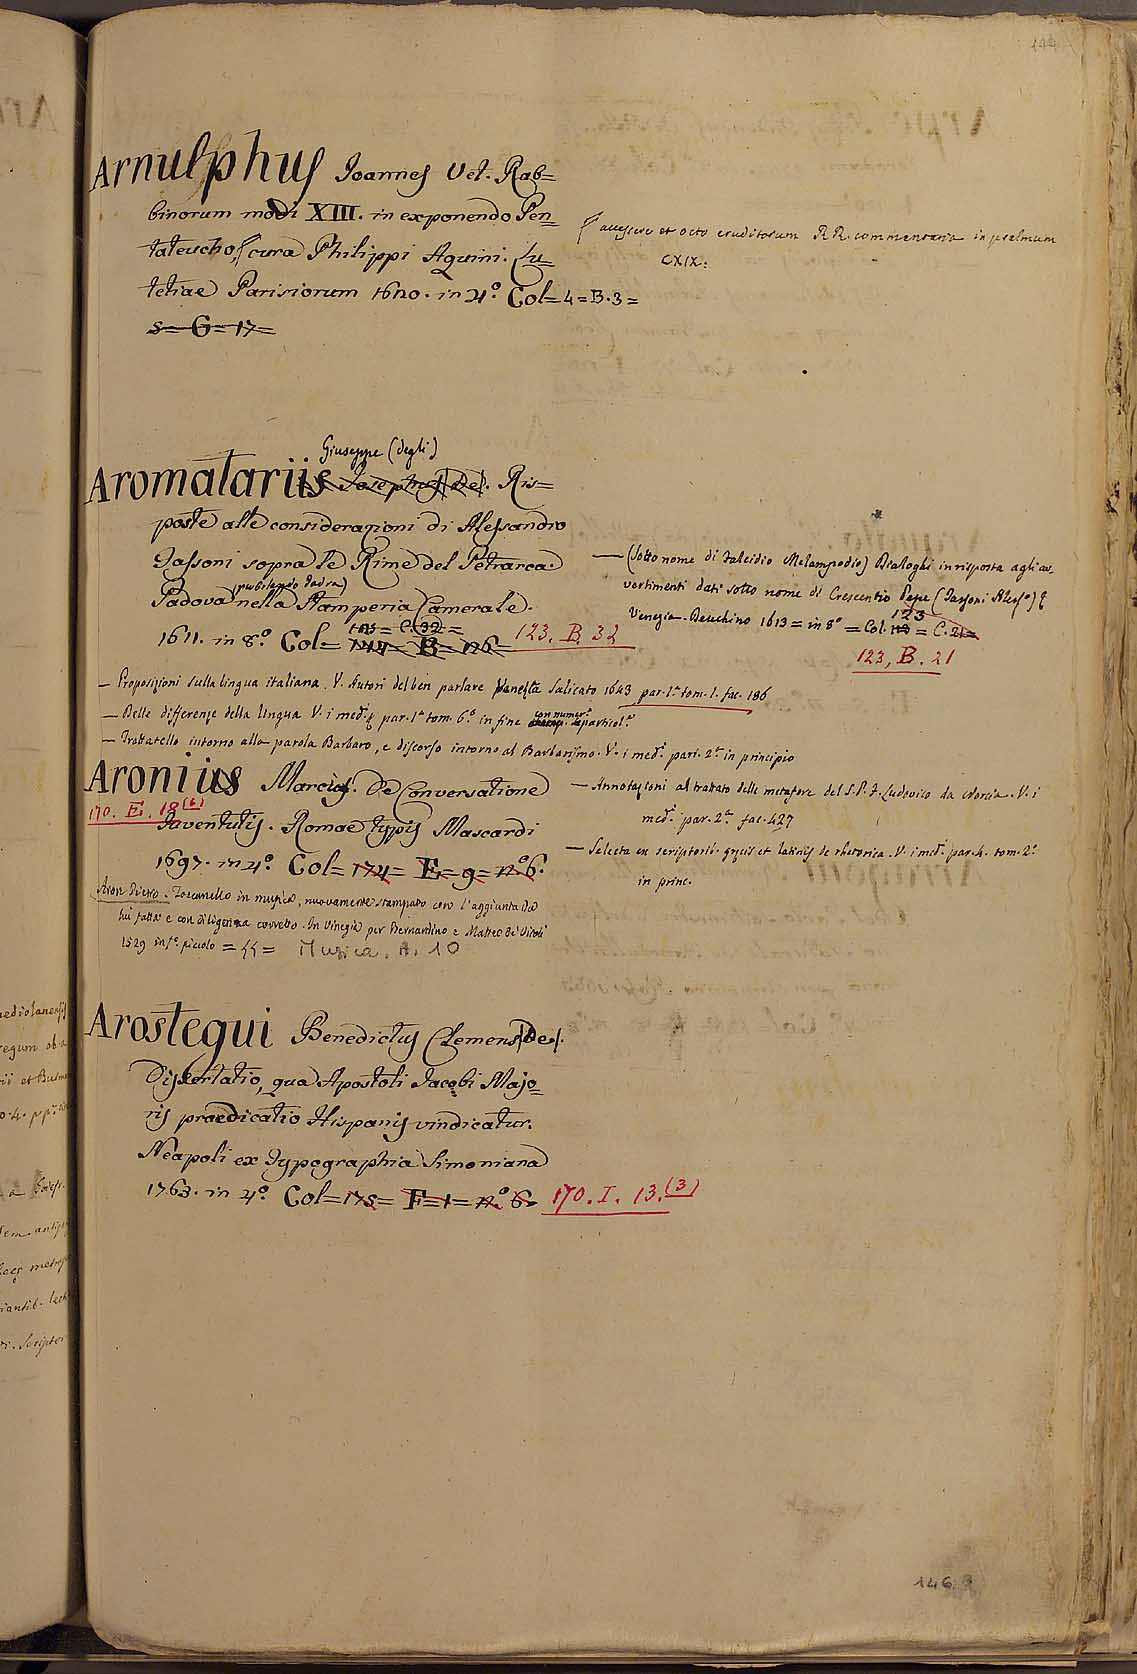 144
Arnulphus Joannes Vet. Rab=
binorum modi XIII. in exponendo Pen=
tateucho, cura Philippi Aquini. Lu=
tetiae Parisiorum 1620. in 4º. Col=4=B.3=
s=G=17=
accessere et octo eruditorum RR. commentaria in psalmum
CXIX.
Giuseppe (degli)
Aromatariis Josephus (De). Ris=
poste alle considerazioni di Alessandro
Tassoni sopra le Rime del Petrarca.
Padova nella Stamperia Camerale.
1611. in 8º. Col=
C. 32=
B=nº6=
123. B. 32
— (sotto nome di Falcidio Melampodio) Dialoghi in risposta agli av-
vertimenti dati sotto nome di Crescentio Pepe (Tassoni Aless.º)
Venezia. Deuchino 1613 = in 8º = Col. 123 = C. 21=
123, B. 21
— Proposizioni sulla lingua italiana. V. Autori del ben parlare Venezia Salicato 1643 par. 1ª tom. 1. fac. 186
— Delle differenze della lingua V. i med.i par. 1ª tom. 6º. in fine con numer.e particol.e
— Trattatello intorno alla parola Barbaro, e discorso intorno al Barbarismo. V. i med.i part. 2ª in principio
— Annotazioni al trattato delle metafore del S. P. F. Ludovico da Norcia. V. i
med.i par. 2ª fac. 427
— Selecta ex scriptorib. grecis et latinis de rhetorica. V. i med.i par. 4. tom. 2º
in princ.
Aronius Marcius. De Conversatione
170. E. 18(6)
Juventutis. Romae typis Mascardi
1697. in 4º. Col=174= E=9=nº6.
Aron Pietro. Toscanello in musica, nuovamente stampato con l'aggiunta da
lui fatta e con diligenza corretto. In Vinegia per Bernardino e Matteo de Vitali
1529 in fº. piccolo = SS = Musica. A. 10
Arostegui Benedictus Clemens (De).
Dissertatio, qua Apostoli Jacobi Majo=
ris praedicatio Hispanis vindicatur.
Neapoli ex Typographia Simoniana
1763. in 4º. Col=175= F=1=nº6= 170. I. 13.(3)
146